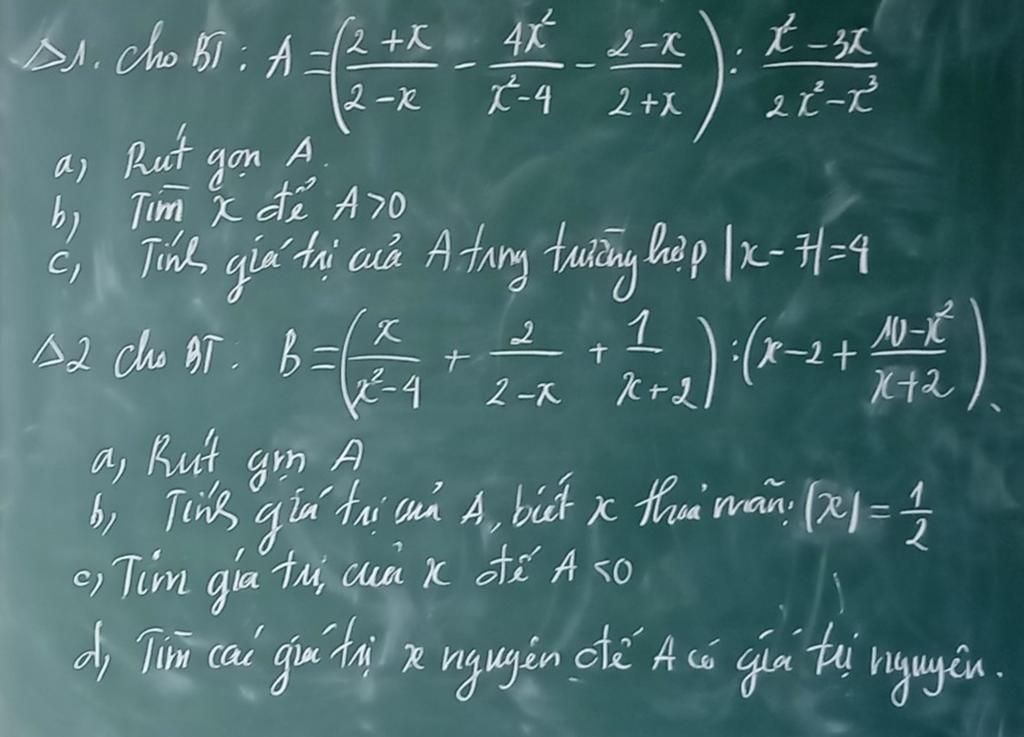 Δ1. Cho BT: A = ((2+x)/(2-x) - 4x²/(x²-4) - (2-x)/(2+x)) : (x²-3x)/(2x²-x³)
a, Rút gọn A.
b, Tìm x để A>0
c, Tính giá trị của A trong trường hợp |x-7|=4
Δ2 Cho BT: B = (x/(x²-4) + 2/(2-x) + 1/(x+2)) : (x-2 + (10-x²)/(x+2)).
a, Rút gọn A
b, Tính giá trị của A, biết x thoả mãn: |x| = 1/2
c, Tìm giá trị của x để A <0
d, Tìm các giá trị x nguyên để A có giá trị nguyên.